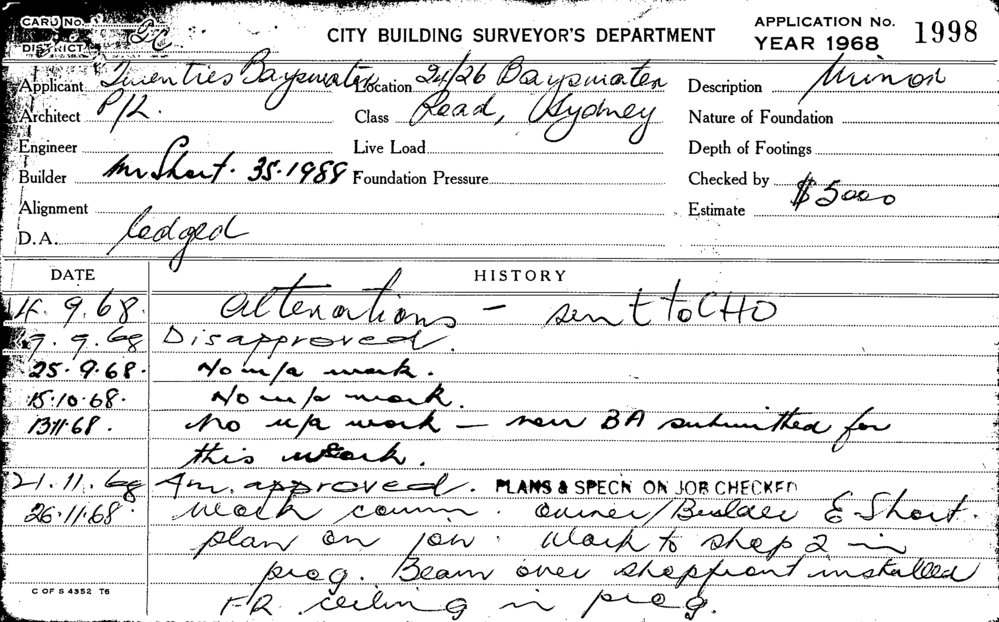 CARD No. GC
DISTRICT
CITY BUILDING SURVEYOR'S DEPARTMENT
APPLICATION No. 1998
YEAR 1968
Applicant Twenties Bayswater P/L. Location 24/26 Bayswater Road, Sydney Description Minor
Architect Class Nature of Foundation
Engineer Live Load Depth of Footings
Builder Mr Short. 35.1989 Foundation Pressure Checked by
Alignment Estimate $5000
D.A. lodged
DATE HISTORY
4. 9. 68. alterations - sent to CHO
9. 9. 68 Disapproved.
25. 9. 68. No u/a work.
15.10.68. No u/a work.
13.11.68. No u/a work - new BA submitted for
this work.
21.11.68 Am. approved. PLANS & SPECN ON JOB CHECKED
26.11.68 Work comm. owner/Builder E Short.
plan on job. Work to shop 2 in
prog. Beam over shopfront installed
FR ceiling in prog.
C OF S 4352 T6